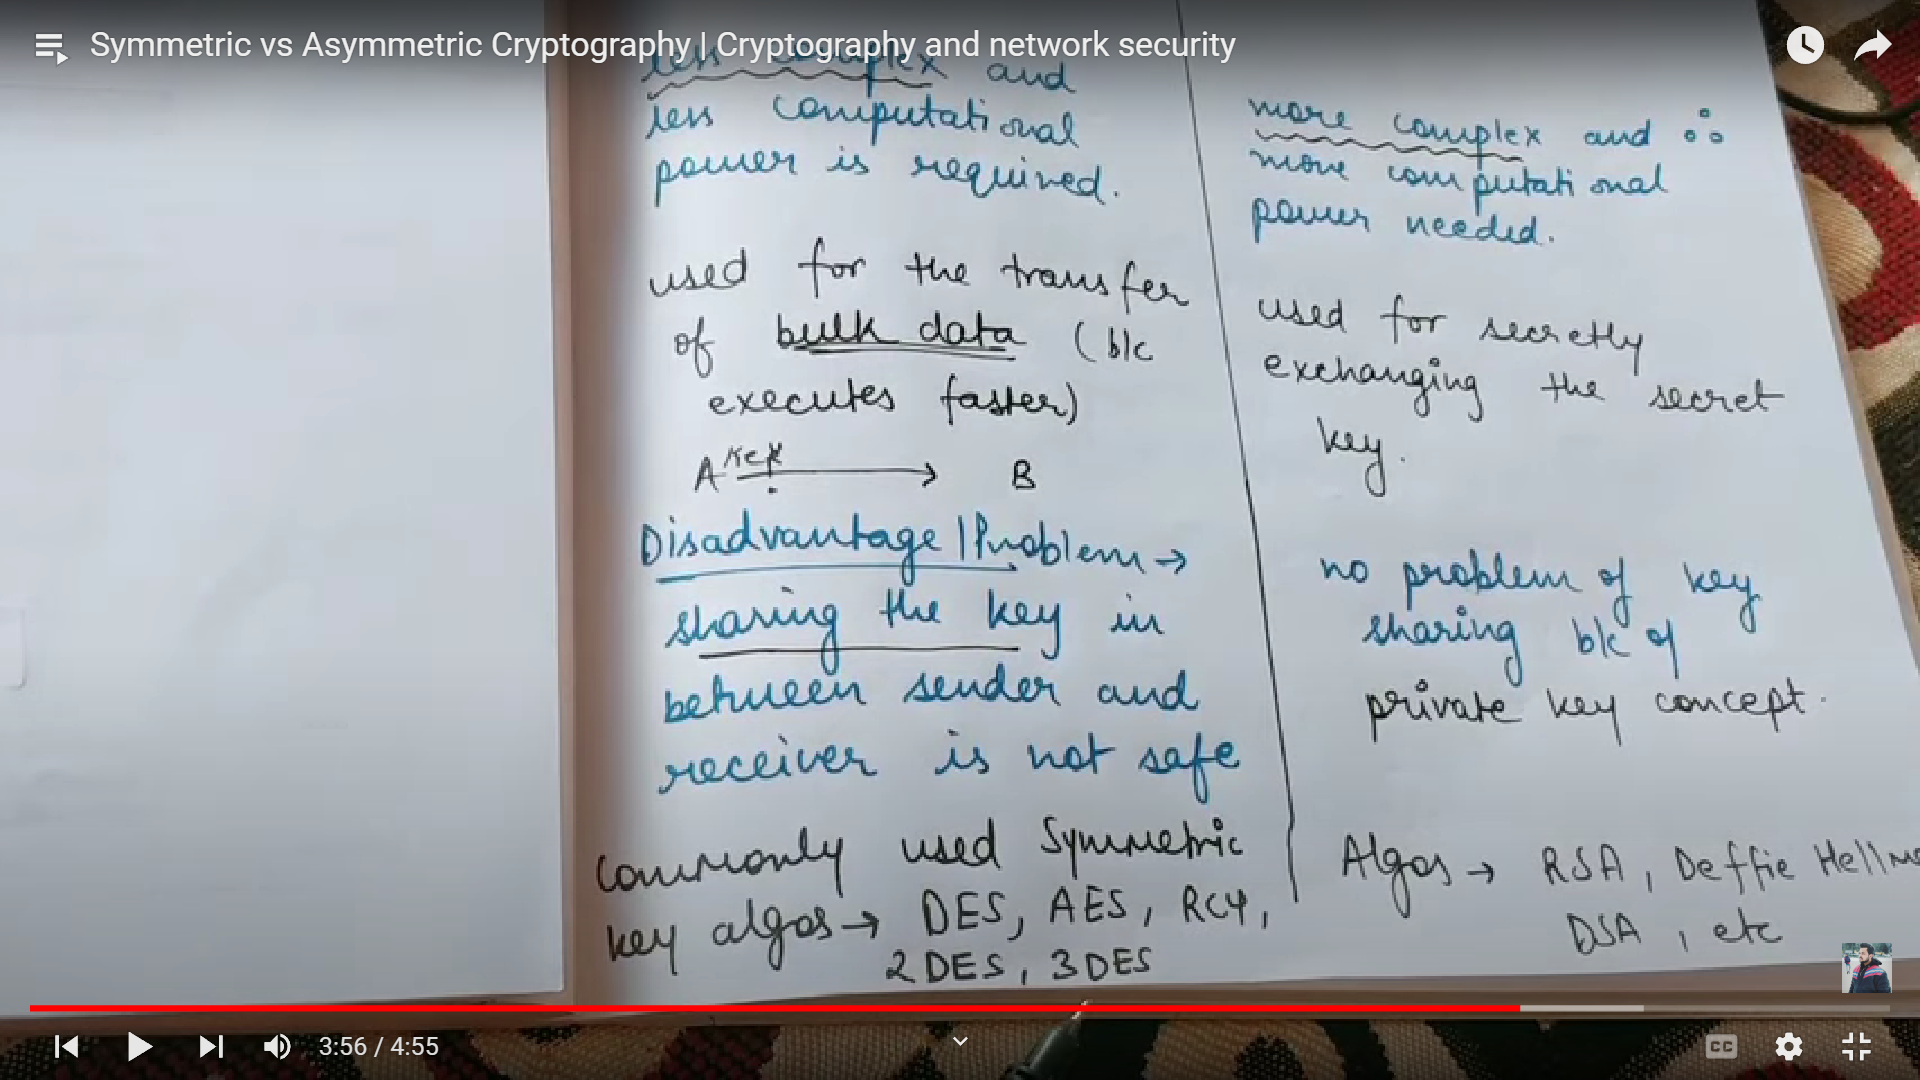 Symmetric vs Asymmetric Cryptography | Cryptography and network security
less complex and
less computational
power is required.
used for the transfer
of bulk data (b/c
executes faster)
A key → B
Disadvantage | Problem →
sharing the key in
between sender and
receiver is not safe
Commonly used Symmetric
key algos → DES, AES, RC4,
2DES, 3DES
more complex and ∴
more computational
power needed.
used for secretly
exchanging the secret
key.
no problem of key
sharing b/c of
private key concept.
Algos → RSA, Deffie
DSA, etc
3:56 / 4:55
CC